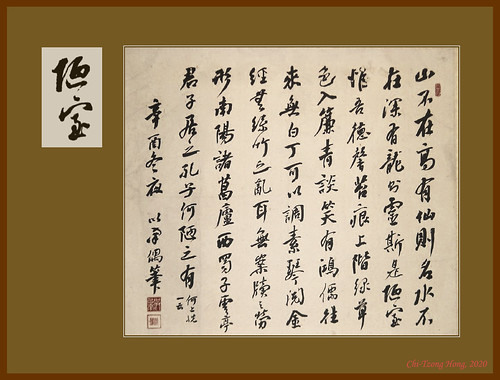 陋室
山不在高有仙則名水不
在深有龍則靈斯是陋室
惟吾德馨苔痕上階綠草
色入簾青談笑有鴻儒往
來無白丁可以調素琴閱金
經無絲竹之亂耳無案牘之勞
形南陽諸葛廬西蜀子雲亭
君子居之孔子何陋之有
何上脱
一云
辛酉冬夜 以學偶筆
Hong, 2020